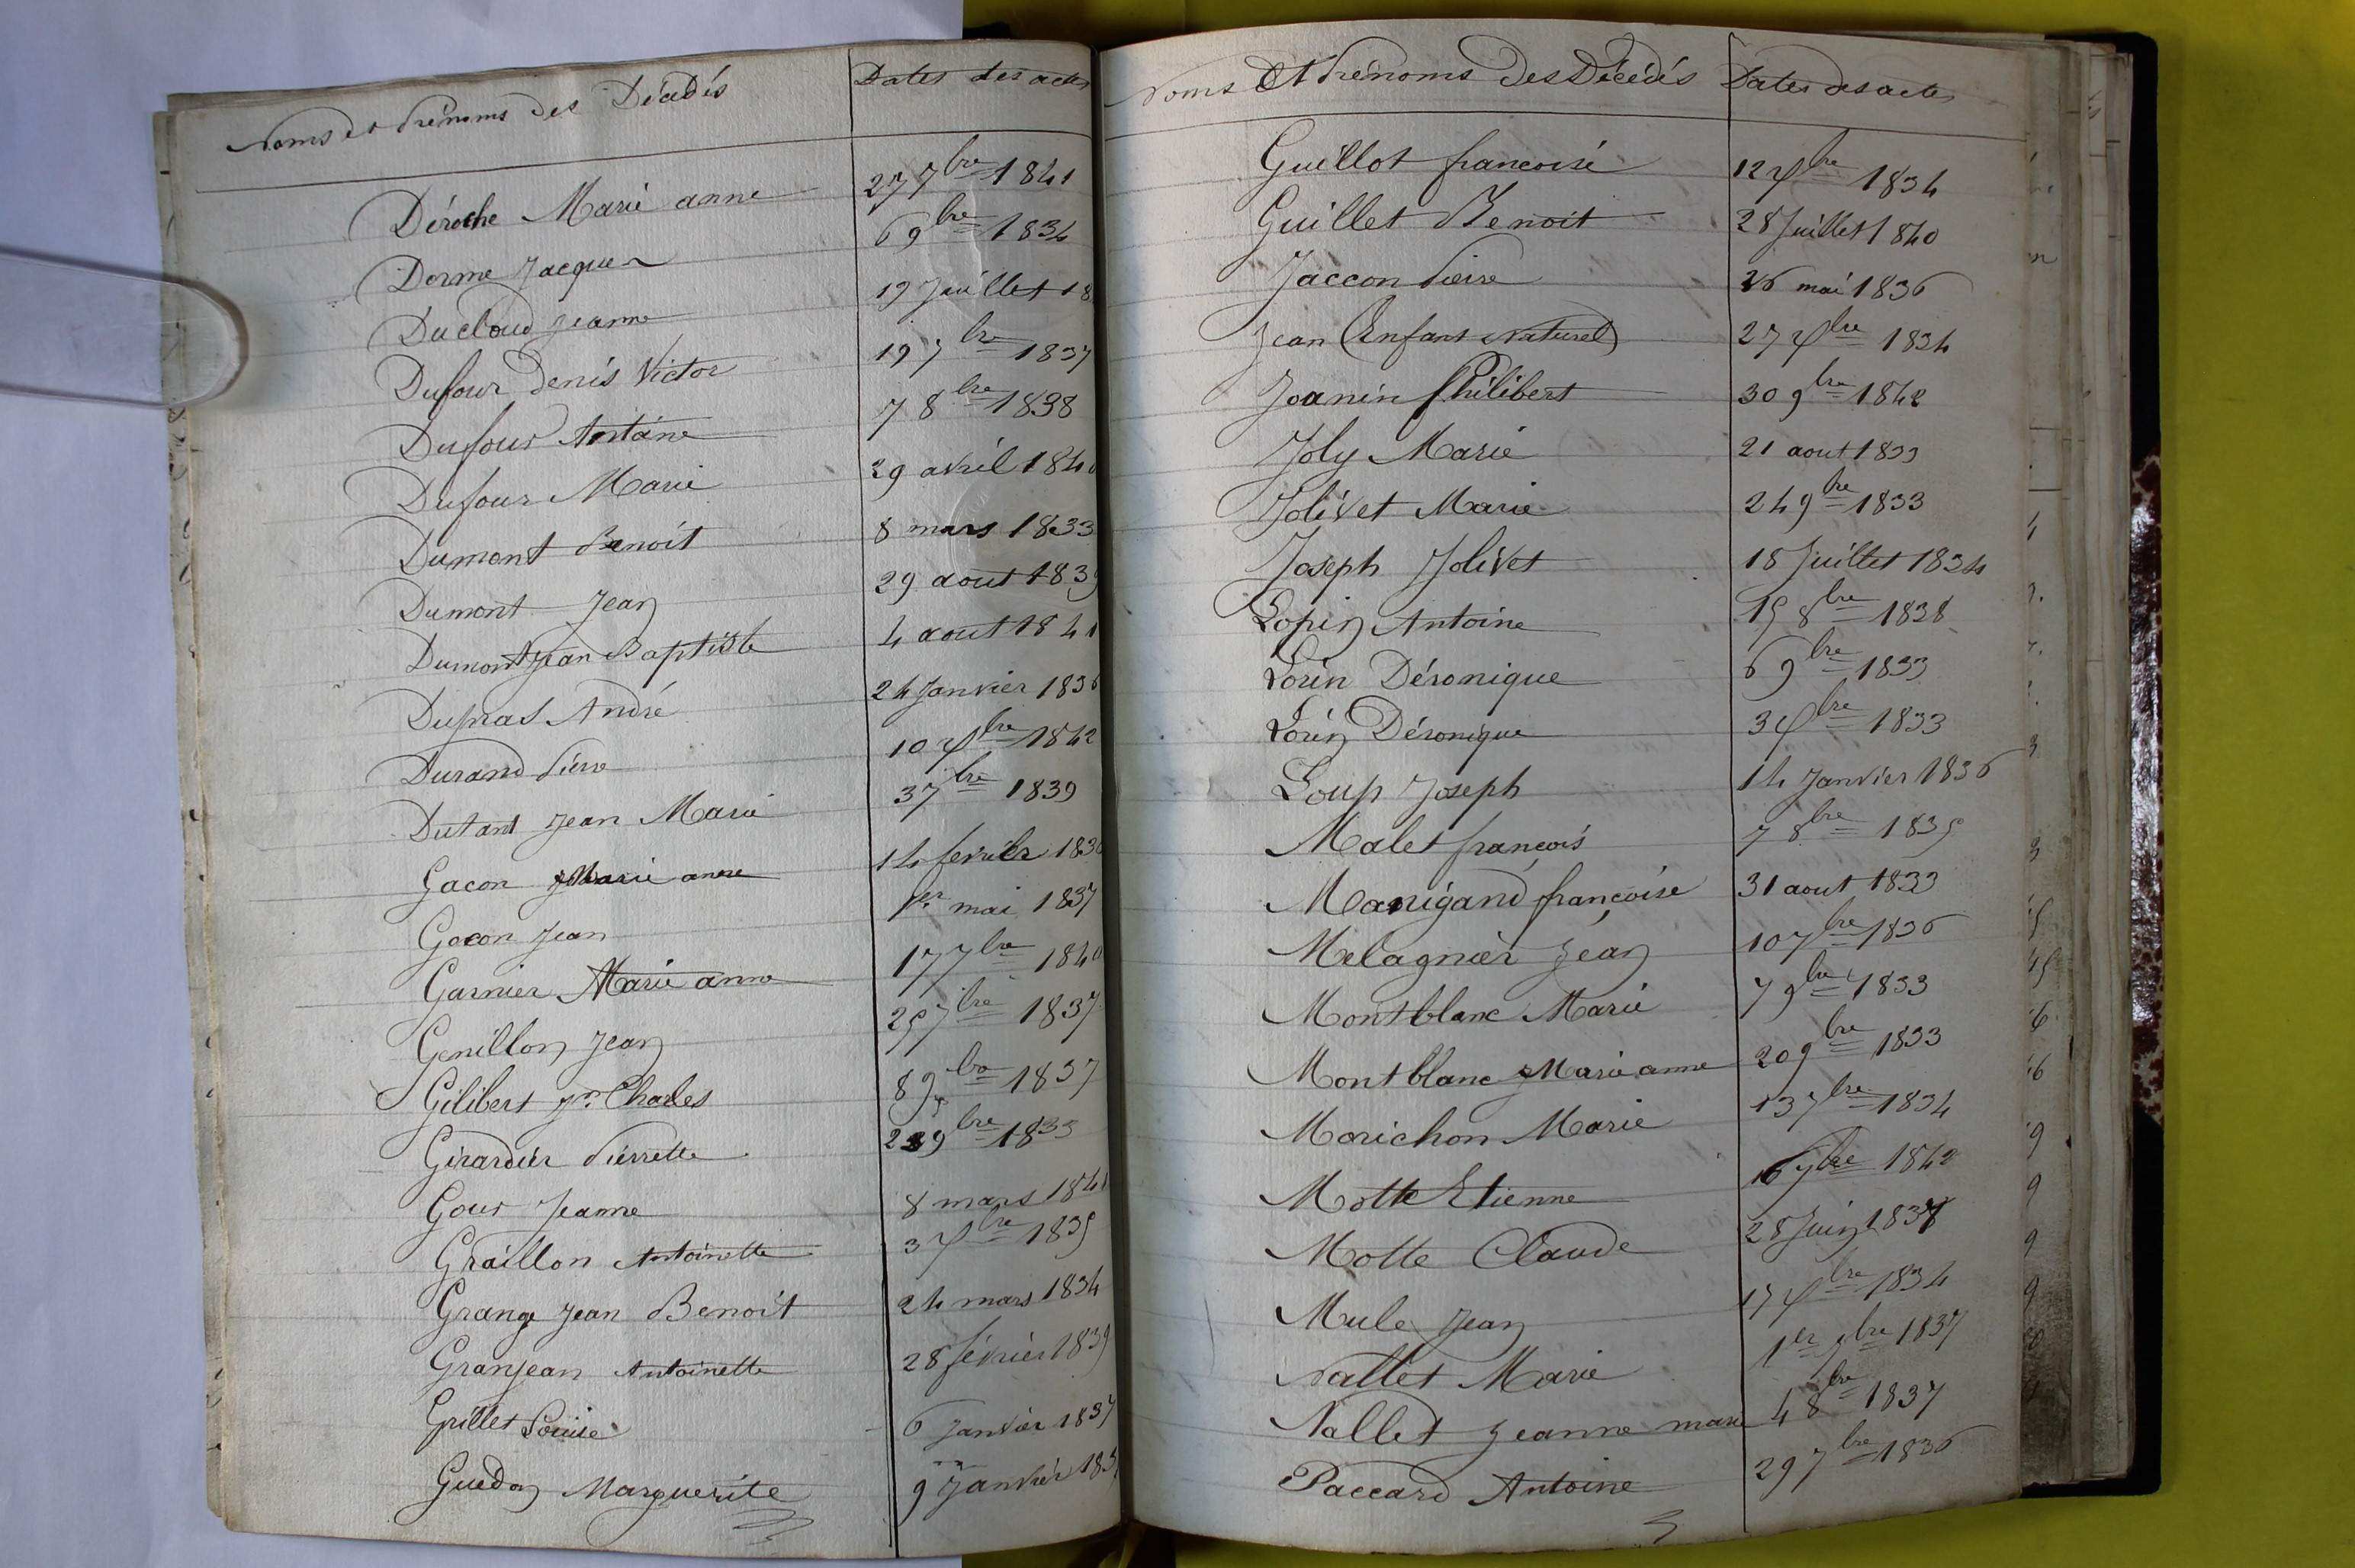 Noms et Prénoms des Décédés Dates des actes
Déroche Marie anne 27 7bre 1841
Dorme Jacques 6 9bre 1834
Ducloud Jeanne 19 Juillet 18
Dufour Denis Victor 19 7bre 1837
Dufour Antoine 7 8bre 1838
Dufour Marie 29 avril 1840
Dumont Benoit 8 mars 1833
Dumont Jean 29 aout 1839
Dumont Jean Baptiste 4 aout 1841
Dupras André 24 Janvier 1836
Durand Pierre 10 Xbre 1842
Dutant Jean Marie 3 7bre 1839
Gacon Marie anne 14 fevrier 183
Gacon Jean 1er mai 1837
Garnier Marie anne 17 7bre 1840
Genillon Jean 25 7bre 1837
Gilibert jn. Charles 8 9bre 1837
Girardier Pierrette 9bre 1835
Gour Jeanne 8 mars 1841
Graillon Antoinette 3 Xbre 1835
Grange Jean Benoit 24 mars 1834
Granjean Antoinette 28 février 1839
Grillet Louise 6 Janvier 1837
Guedon Marguerite 9 Janvier 183
Noms Et Prénoms Des Décédés Dates des actes
Guillot francoise 12 Xbre 1834
Guillet Benoit 28 Juillet 1840
Jaccon Pierre 26 mai 1836
Jean (Enfant Naturel) 27 Xbre 1834
Joanin Philibert 30 9bre 1842
Joly Marie 21 aout 1833
Jolivet Marie 24 9bre 1833
Joseph Jolivet 18 Juillet 1834
Lopin Antoine 15 8bre 1838
Lorin Déronique 6 9bre 1833
Lorin Déronique 3 Xbre 1833
Loup Joseph 14 Janvier 1836
Malet françois 7 8bre 1835
Manigand françoise 31 aout 1833
Melagnier Jean 10 7bre 1836
Montblanc Marie 7 9bre 1833
Montblanc Marie anne 20 9bre 1833
Morichon Marie 13 7bre 1834
Motte Etienne 16 7bre 1842
Motte Claude 28 Juin 1837
Mule Jean 17 Xbre 1834
Nallet Marie 1er Xbre 1837
Nallet Jeanne marie 4 8bre 1837
Paccard Antoine 29 7bre 1836